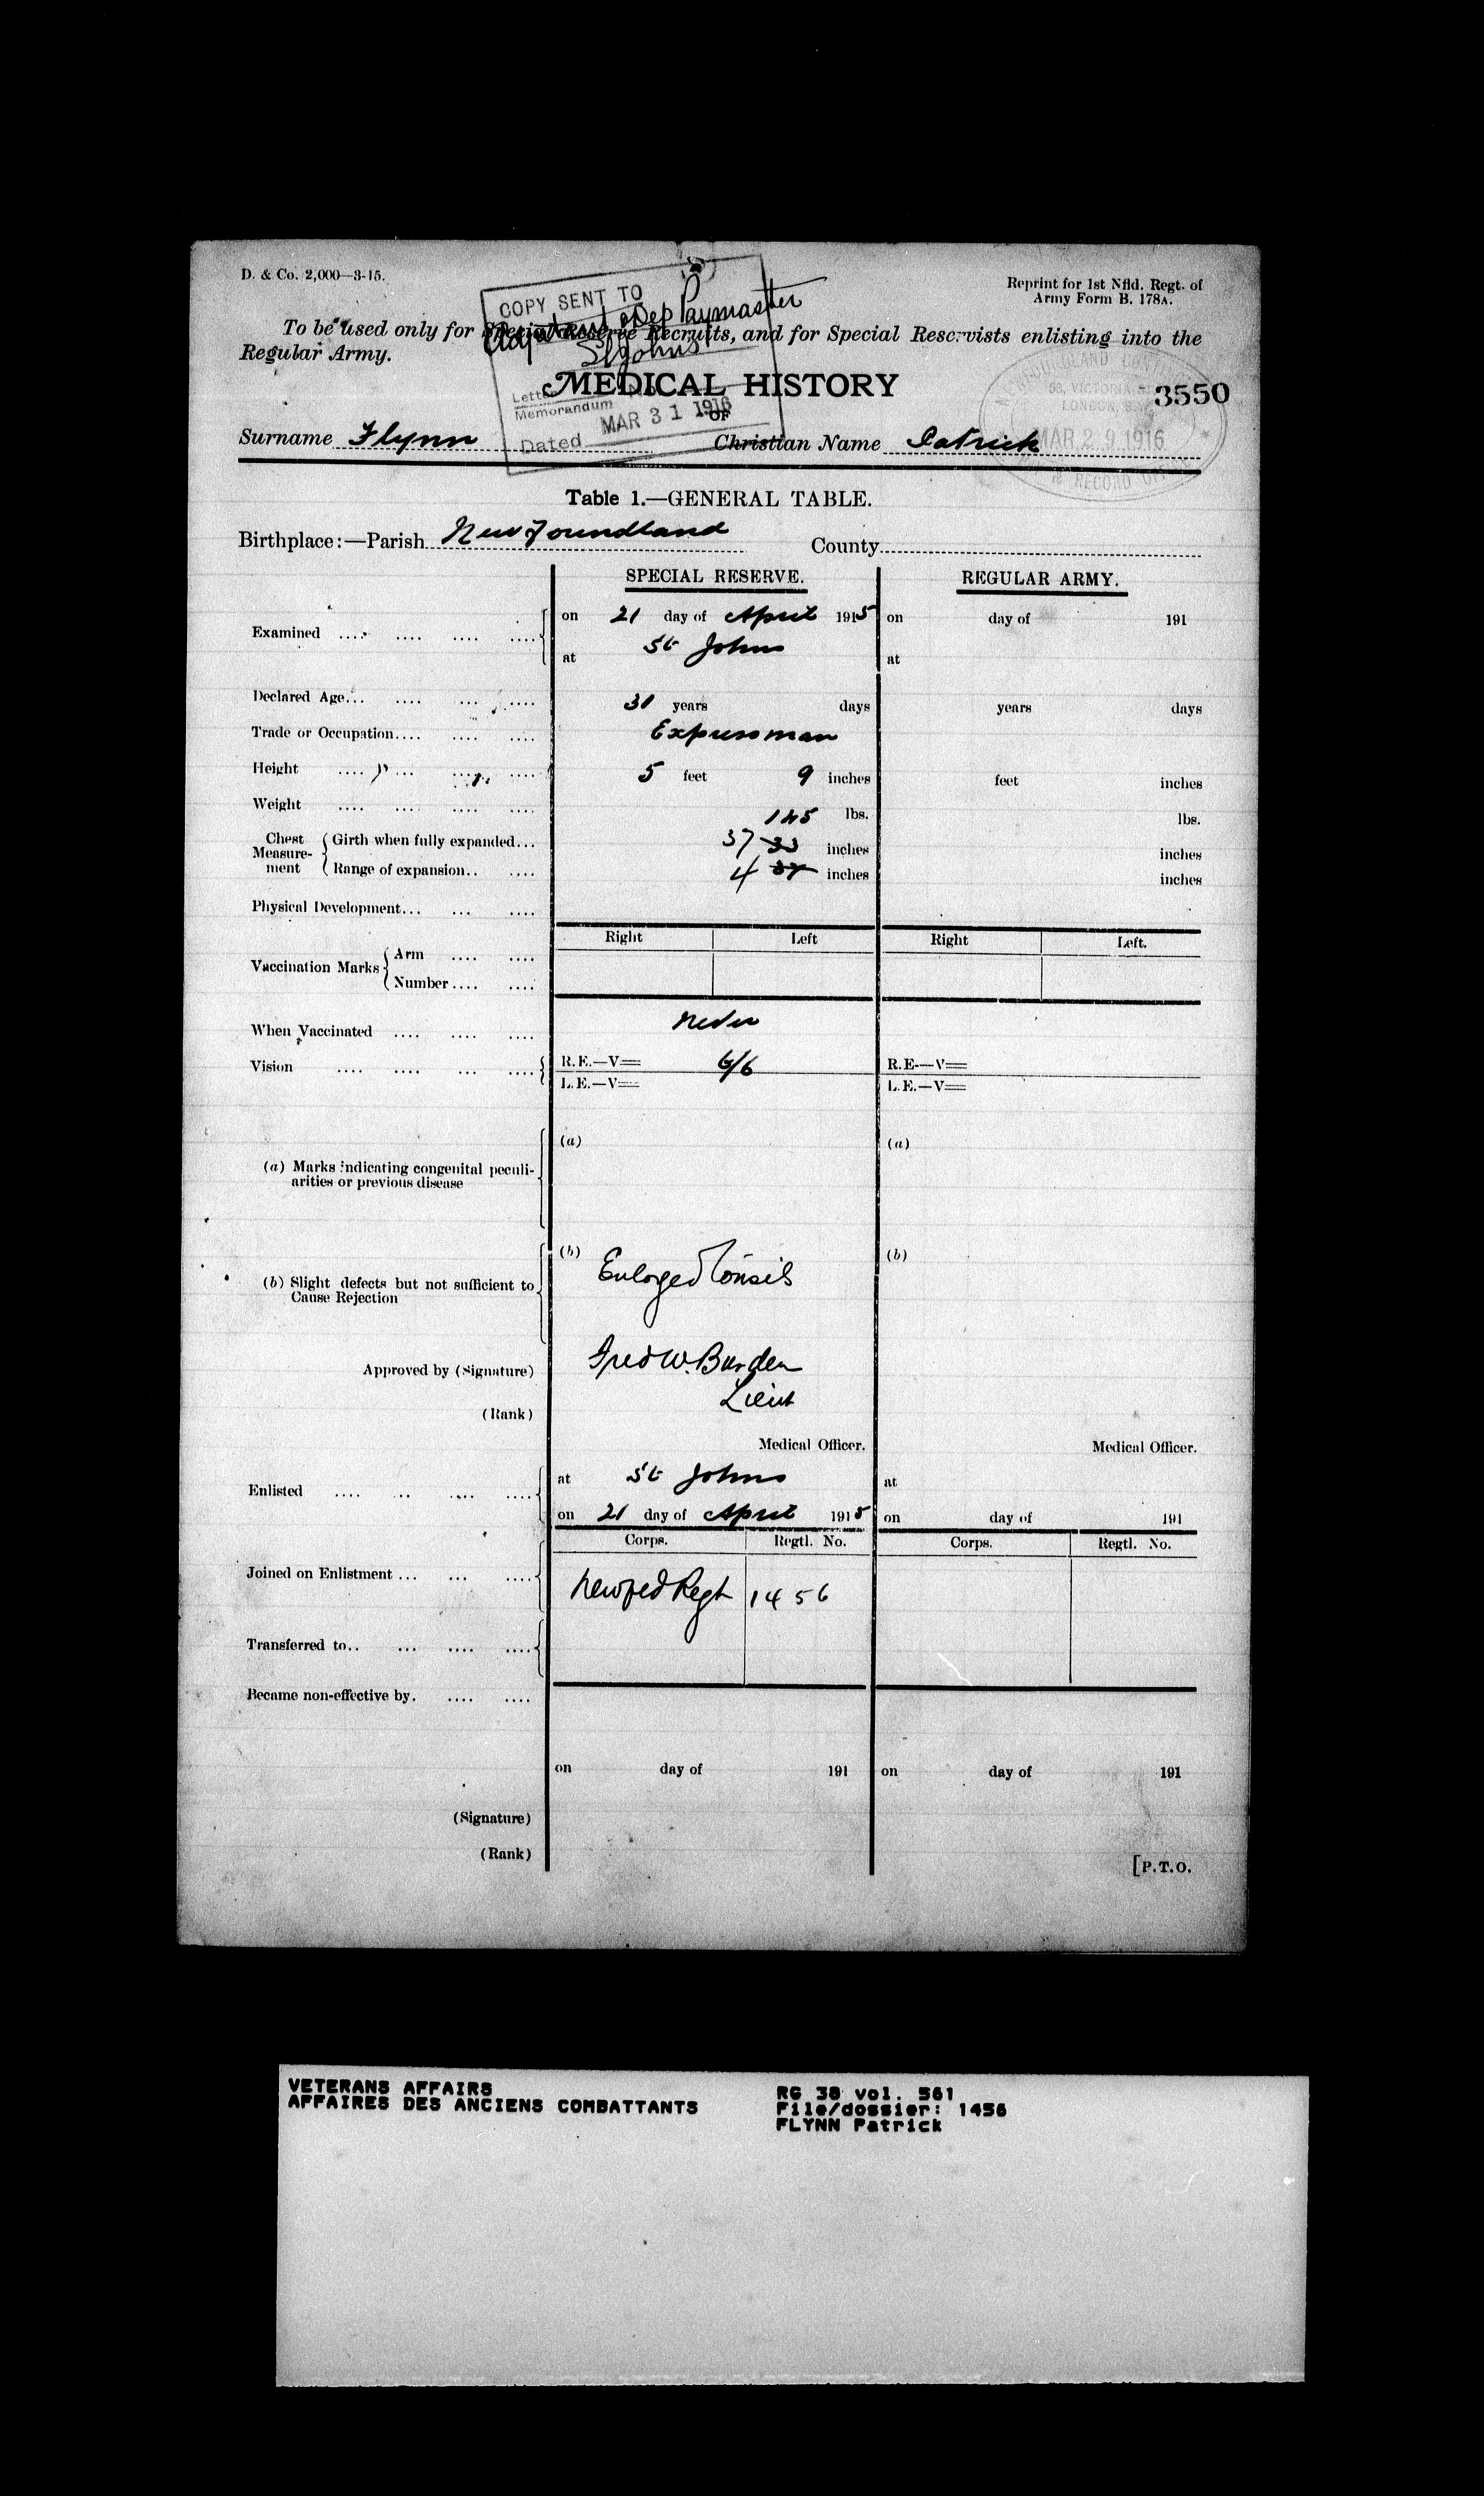 D. & Co. 2,000—3-15.
Reprint for 1st Nfld. Regt. of
Army Form B. 178A.
COPY SENT TO
Adjutant & Dep Paymaster
St Johns
To be used only for Special Reserve Recruits, and for Special Reservists enlisting into the
Regular Army.
MEDICAL HISTORY
3550
Letter
Memorandum
OF
Dated MAR 31 1916
LONDON, S.W.
MAR 29 1916
RECORD OFFICE
Surname Flynn Christian Name Patrick
Table 1.—GENERAL TABLE.
Birthplace:—Parish Newfoundland County
SPECIAL RESERVE. REGULAR ARMY.
Examined on 21 day of April 1915 on day of 191
at St Johns at
Declared Age 31 years days years days
Trade or Occupation Expressman
Height 5 feet 9 inches feet inches
Weight 145 lbs. lbs.
Chest Measurement Girth when fully expanded 37 33 inches inches
Range of expansion 4 37 inches inches
Physical Development
Right Left Right Left.
Vaccination Marks Arm
Number
When Vaccinated Never
Vision R.E.—V= 6/6 R.E—V=
L.E.—V= L.E.—V=
(a) (a)
(a) Marks indicating congenital peculi-
arities or previous disease
(b) Enlarged Tonsils (b)
(b) Slight defects but not sufficient to
Cause Rejection
Approved by (Signature) Fred W. Burden
(Rank) Lieut
Medical Officer. Medical Officer.
Enlisted at St Johns at
on 21 day of April 1915 on day of 191
Corps. Regtl. No. Corps. Regtl. No.
Joined on Enlistment Newfed Regt 1456
Transferred to
Became non-effective by
on day of 191 on day of 191
(Signature)
(Rank)
[P.T.O.
VETERANS AFFAIRS
AFFAIRES DES ANCIENS COMBATTANTS
RG 38 vol. 561
File/dossier: 1456
FLYNN Patrick